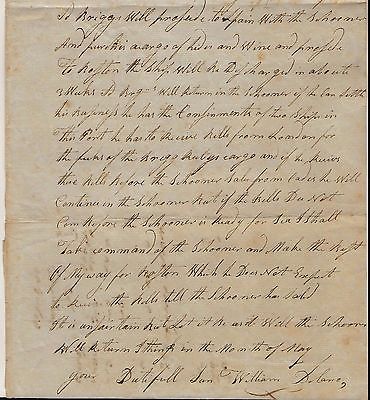 Sd Briggs Will prosede to Spain With the Schooner
And purches a cargo of Sides and Wine and prosede
To Boston the Ship Will Be Discharged in aboute
3 Weeks Sd Brigs Will Return in the Schooner if he Can Settle
his Busness he has the Consinments of two Ships in
This Port he has to Receive Bills from London for
the of the Brigs cargo and if he Receives
these Bills Before the Schooner Sales from Cades he Will
Continue in the Schooner But if the Bills Due Not
Com Before the Schooner is Ready for Sea I Shall
Take command of the Schooner and Make the Best
Of My way for Boston Which he Does Not Expect
to Receive the Bills till the Schooner has Saled
It is unsertain But Let it Be as it Will the Schooner
Will Return I think in the Month of May
your Dutifull Sun William Delano,